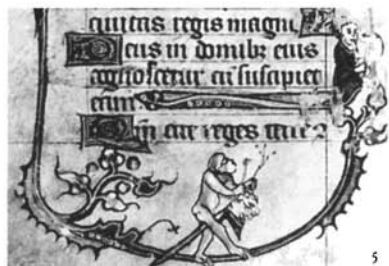 cuitas regis magni,
Deus in domibz eius
cognoscetur cū suscipiet
eam
reges terre
5